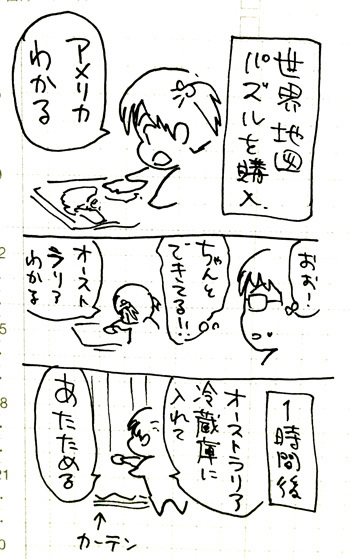 世界地図
パズルを購入
アメリカ
わかる
おお!
ちゃんと
できてる!!
オースト
ラリア
わかる
1時間後
オーストラリア
冷蔵庫に
入れて
あたためる
↑
カーテン